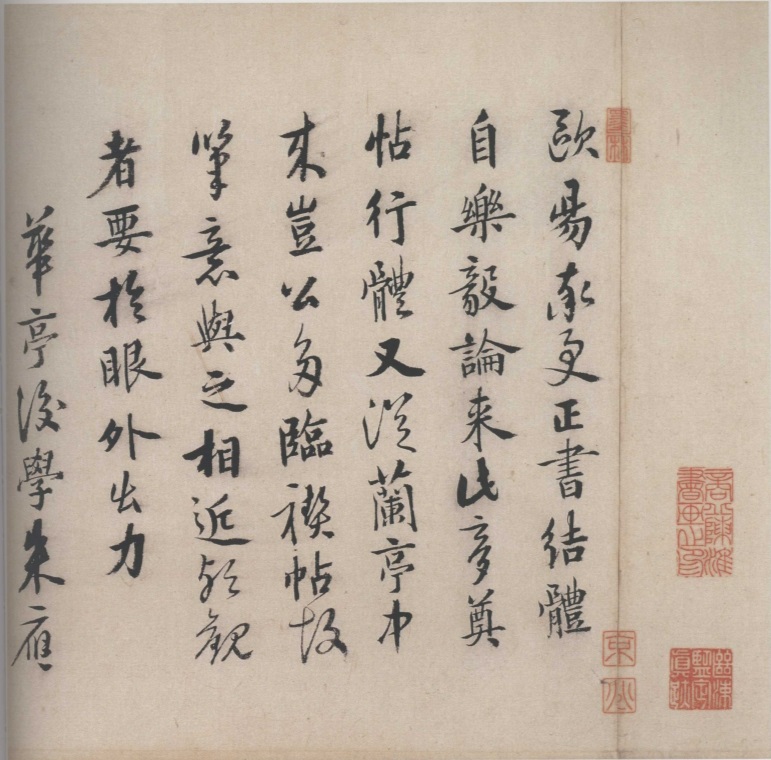 歐陽率更正書結體
自樂毅論來此夢奠
帖行體又從蘭亭中
來豈公多臨禊帖故
筆意與之相近歟觀
者要於眼外出力
華亭後學朱應